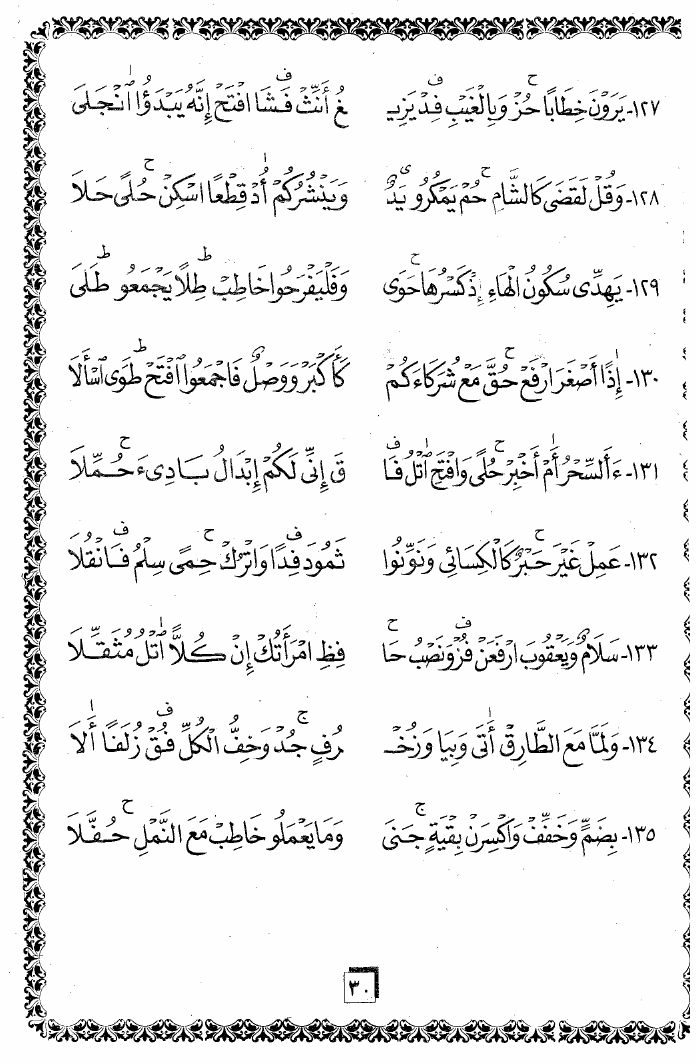 ١٢٧- يَرَوْنَ خِطَابًا حُزْ وَبِالْغَيْبِ فِدْ يَزِيـ غُ أَنِّثْ فَشَا افْتَحْ إِنَّهُ يَبْدَؤُا انْجَلَى
١٢٨- وَقُلْ لَقَضَى كَالشَّامِ حُمْ يَمْكُرُو يَدٌ وَيَنْشُرُكُمْ أُدْ قِطْعًا اسْكِنْ حُلًى حَلَا
١٢٩- يَهِدِّى سُكُونُ الْهَاءِ إِذْ كَسْرُهَا حَوَى وَفَلْيَفْرَحُوا خَاطِبْ طِلًا يَجْمَعُو طَلَى
١٣٠- إِذًا أَصْغَرَ ارْفَعْ حُقَّ مَعْ شُرَكَاءَكُمْ كَأَكْبَرْ وَوَصْلٌ فَاجْمَعُوا افْتَحْ طَوَى اسْأَلَا
١٣١- ءَ أَلسِّحْرُ أَمْ أَخْبِرْ حُلًى وَافْتَحِ اتْلُ فَا قَ إِنِّى لَكُمْ إِبْدَالُ بَادِىءَ حُمِّلَا
١٣٢- عَمِلْ غَيْرَ حَبْرٌ كَالْكِسَائِى وَنَوِّنُوا ثَمُودَ فِدًا وَاتْرُكْ حِمًى سِلْمُ فَانْقُلَا
١٣٣- سَلَامٌ وَيَعْقُوبَ ارْفَعَنْ فُزْ وَنَصْبُ حَا فِظِ امْرَأَتُكْ إِنْ كُلًّا اتْلُ مُثَقِّلَا
١٣٤- وَلَمَّا مَعَ الطَّارِقْ أَتَى وَبِيَا وَزُخْـ رُفٍ جُدْ وَخِفُّ الْكُلِّ فُقْ زُلَفًا أَلَا
١٣٥- بِضَمٍّ وَخَفِّفْ وَاكْسِرَنْ بِقْيَةٍ جَنَى وَمَا يَعْمَلُو خَاطِبْ مَعَ النَّمْلِ حُفَّلَا
٣٠